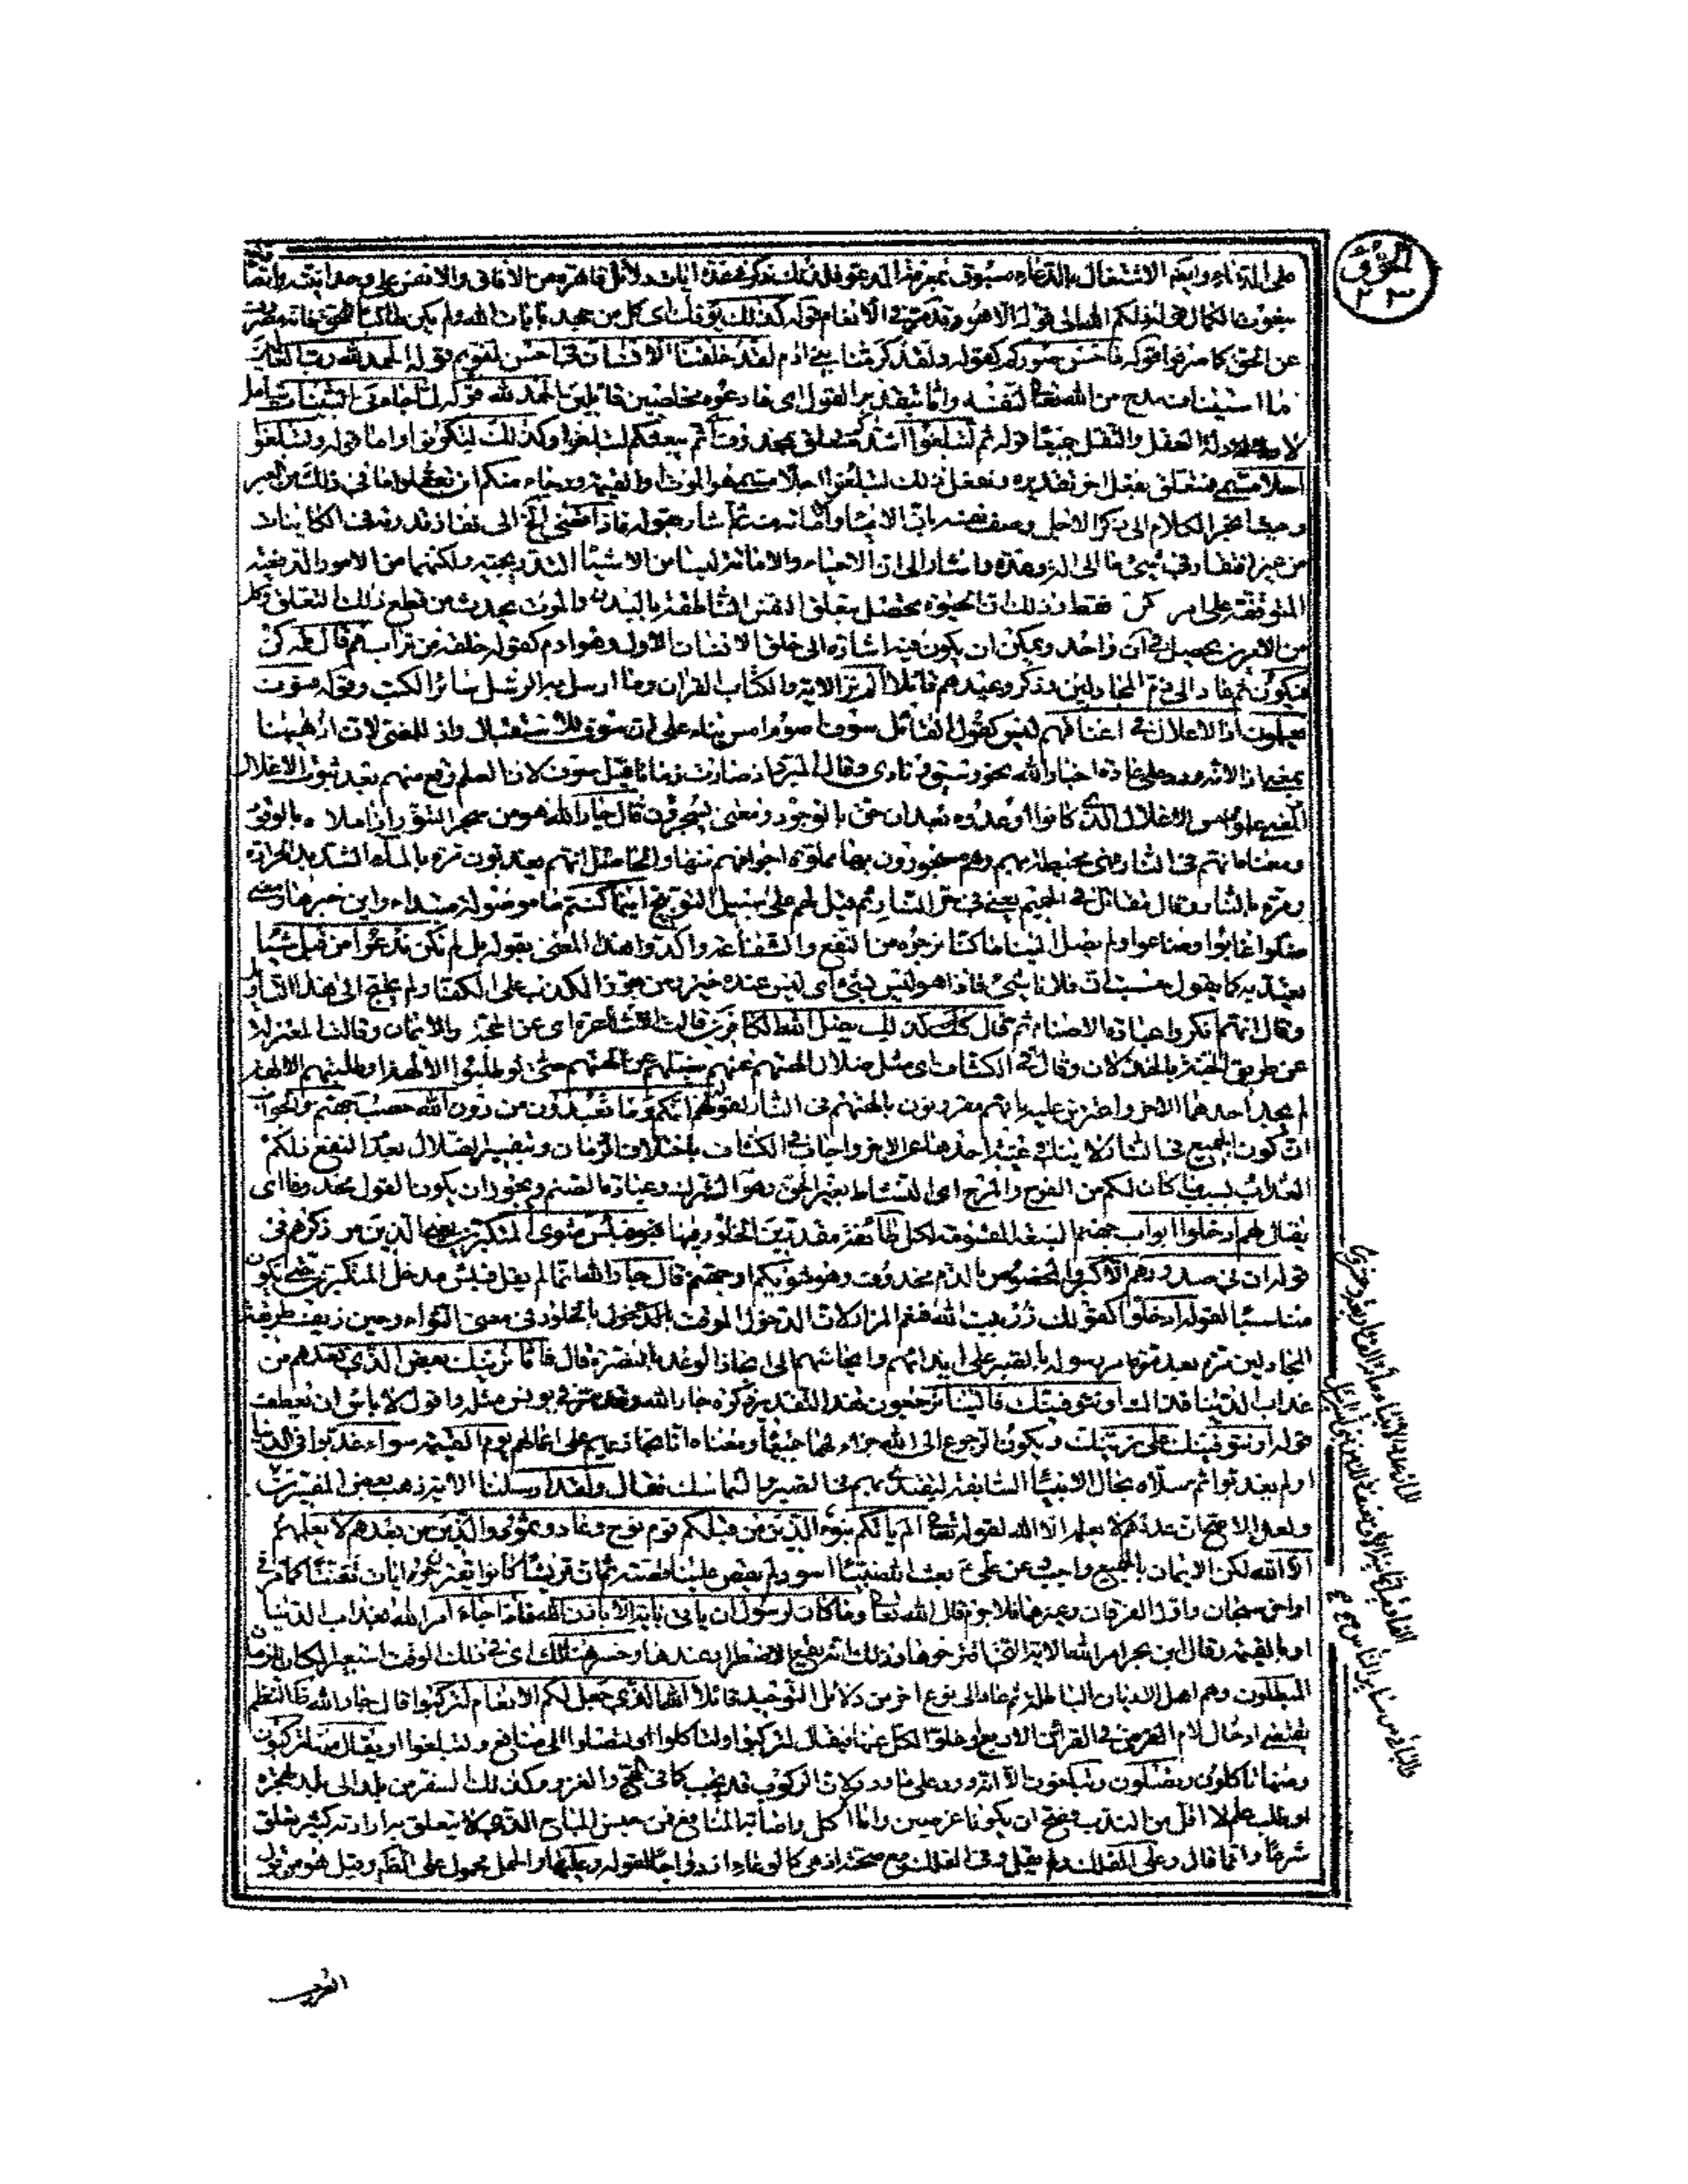 على الدعاء وايضا الاشتغال بالدعاء مسبوق بمعرفة المدعو فلذلك ذكر عدة ايات دلائل قاهرة من الآفاق والانفس على وحدانيته
بنعوت الكمال الى قوله الا هو وقد مر في الانعام قوله كذلك يؤفك اى كل من جحد بآيات الله ولم يكن طالبا للحق فانه مصروف
عن الحق كما صرفوا قوله فاحسن صوركم كقوله ولقد كرمنا بني ادم لقد خلقنا الانسان في احسن تقويم قوله الحمد لله رب العالمين
اما استيناف مدح من الله تعالى لنفسه واما بتقدير القول اى فادعوه مخلصين قائلين الحمد لله قوله لما جاءني البينات شامل
لادلة العقل والنقل جميعا قوله ثم لتبلغوا اشدكم متعلق بمحذوف اى ثم يبقيكم لتبلغوا وكذلك لتكونوا واما قوله ولتبلغوا
اجلا مسمى فمتعلق بفعل اخر تقديره ونفعل ذلك لتبلغوا اجلا مسمى هو الموت او القيمة ورجاء منكم ان تعقلوا ما في ذلك من العبر
وحيث انجر الكلام الى ذكر الاجل وصف نفسه بان الاحياء والاماتة منه ثم اشار بقوله فاذا قضى الخ الى نفاذ قدرته في الكائنات
من غير افتقار في شيء ما الى الة وعدة واشار الى ان الاحياء والاماتة ليسا من الاشياء التدريجية ولكنهما من الامور الدفعية
المتوقفة على امر كن فقط وذلك ان الحيوة تحصل بتعلق النفس الناطقة بالبدن والموت يحدث من قطع ذلك التعلق وكل
من الامرين يحصل في آن واحد ويمكن ان يكون فيه اشارة الى خلق الانسان الاول وهو ادم كقوله خلقه من تراب ثم قال له كن
فيكون ثم عاد الى ذم المجادلين وذكر وعيدهم قائلا الم تر الآية والكتاب القران وما ارسل به الرسل سائر الكتب وقوله فسوف
يعلمون اذ الاغلال في اعناقهم ليس كقول القائل سوف اصوم امس بناء على ان سوف للاستقبال واذ للمضي لان اذ ههنا
بمعنى اذا الا انه ورد على عادة اخبار الله نحو وسيق ونادى وقال المبرد اذ صارت زمانا قبل سوف لان العلم وقع منهم بعد ثبوت الاغلال
كانوا اوعدوه بعد ان حق بالوجود ومعنى يسجرون قال جار الله هو من سجر التنور اذا ملاه بالوقود
ومعناه انهم في النار فهي محيطة بهم وهم مسجورون بها مملوءة اجوافهم منها والحاصل انهم يعذبون مرة بالماء الشديد الحرارة
ومرة بالنار وقال مقاتل في الحميم يعني في حر النار ثم قيل لهم على سبيل التوبيخ اينما كنتم ما موصولة مبتداء واين خبرها ومعنى
ضلوا غابوا وضاعوا ولم يصل الينا ما كنا نرجوه من النفع والشفاعة واكدوا هذا المعنى بقوله بل لم نكن ندعوا من قبل شيئا
يعتد به كما يقول حسبت ان فلانا شيئ فاذا هو ليس بشيء اى ليس عنده خير ومن جوز الكذب على الكفار لم يحتج الى هذا التاويل
وقال انهم انكروا عبادة الاصنام ثم قال كذلك يضل الله الكافرين قالت الاشاعرة اى عن الحجة والايمان وقالت المعتزلة
عن طريق الجنة بالخذلان وقال في الكشاف اى مثل ضلال الهتهم عنهم يضلهم عن الهتهم حتى لو طلبوا الآلهة او طلبتهم الآلهة
لم يجد احدهما الاخر واعترض عليه بانهم مقرونون بالهتهم في النار لقوله انكم وما تعبدون من دون الله حصب جهنم والجواب
ان كون الجميع في النار لا ينافي غيبة احدهما عن الاخر واجاب في الكشاف باختلاف الزمان وبتفسير الضلال بعدم النفع ذلكم
العذاب بسبب ما كان لكم من الفرح والمرح اى النشاط بغير الحق وهو الشرك وعبادة الصنم ويجوز ان يكون القول محذوفا اى
يقال لهم ادخلوا ابواب جهنم السبعة المقسومة لكل طائفة مقدرين الخلود فيها فبئس مثوى المتكبرين الذين مر ذكرهم في
قوله ان في صدورهم الا كبر والمخصوص بالذم محذوف وهو مثويكم او جهنم قال جار الله انما لم يقل فبئس مدخل المتكبرين حتى يكون
مناسبا لقوله ادخلوا كقولك زر بيت الله فنعم المزار لان الدخول الموقت بالخلود في معنى الثواء وحين زيف طريقة
المجادلين مرة بعد مرة امر رسوله بالصبر على ايذائهم وايحاشهم الى انجاز الوعد بالنصرة قال فاما نرينك بعض الذي نعدهم من
عذاب الدنيا فذاك او نتوفينك فالينا يرجعون هذا التقدير ذكره جار الله وقد مر في يونس مثله واقول لا باس ان يعطف
قوله او نتوفينك على نرينك ويكون الرجوع الى الله جزاء لهما جميعا ومعناه انا نجازيهم على اعمالهم يوم القيمة سواء عذبوا في الدنيا
او لم يعذبوا ثم سلاه بحال الانبياء السابقة ليقتدي بهم في الصبر والتماسك فقال ولقد ارسلنا الآية ذهب بعض المفسرين
ولعل الاصح ان عددهم لا يعلمه الا الله لقوله تعالى الم ياتكم نبؤ الذين من قبلكم قوم نوح وعاد وثمود والذين من بعدهم لا يعلمهم
الا الله لكن الايمان بالجميع واجب عن علي بعث الله نبيا اسود لم يقص علينا قصته ثم ان قريشا كانوا يقترحون ايات تعنتا كما مر في
اواخر سبحان واول الفرقان وغيرهما فلا جرم قال الله تعالى وما كان لرسول ان ياتي باية الا باذن الله فاذا جاء امر الله بعذاب الدنيا
او بالقيمة وقال ابن بحر امر الله الآية التي اقترحوها وذلك انه يقع الاضطرار عندها وخسر هنالك اى في ذلك الوقت استعير المكان للزمان
المبطلون وهم اهل الاديان الباطلة ثم عاد الى نوع اخر من دلائل التوحيد قائلا الله الذي جعل لكم الانعام لتركبوا قال جار الله ظاهر النظم
يقتضي ادخال لام الغرض في القرائن الاربع او خلو الكل عنها فيقال لتركبوا ولتاكلوا ولتصلوا الى منافع ولتبلغوا او يقال منها تركبون
ومنها تاكلون وتصلون وتبلغون الا انه ورد على ما ورد لان الركوب قد يجب كما في الحج والغزو وكذلك السفر من بلد الى بلد لهجرة
او طلب علم لا اقل من الندب فصح ان يكونا غرضين واما الاكل واصابة المنافع فمن جنس المباح الذي لا يتعلق به ارادته كثير تعلق
شرعا وانما قال وعلى الفلك ولم يقل وفي الفلك مع صحته اذ هي كالوعاء ازدواجا لقوله وعليها والحمل محمول على الظاهر وقيل هو من قول